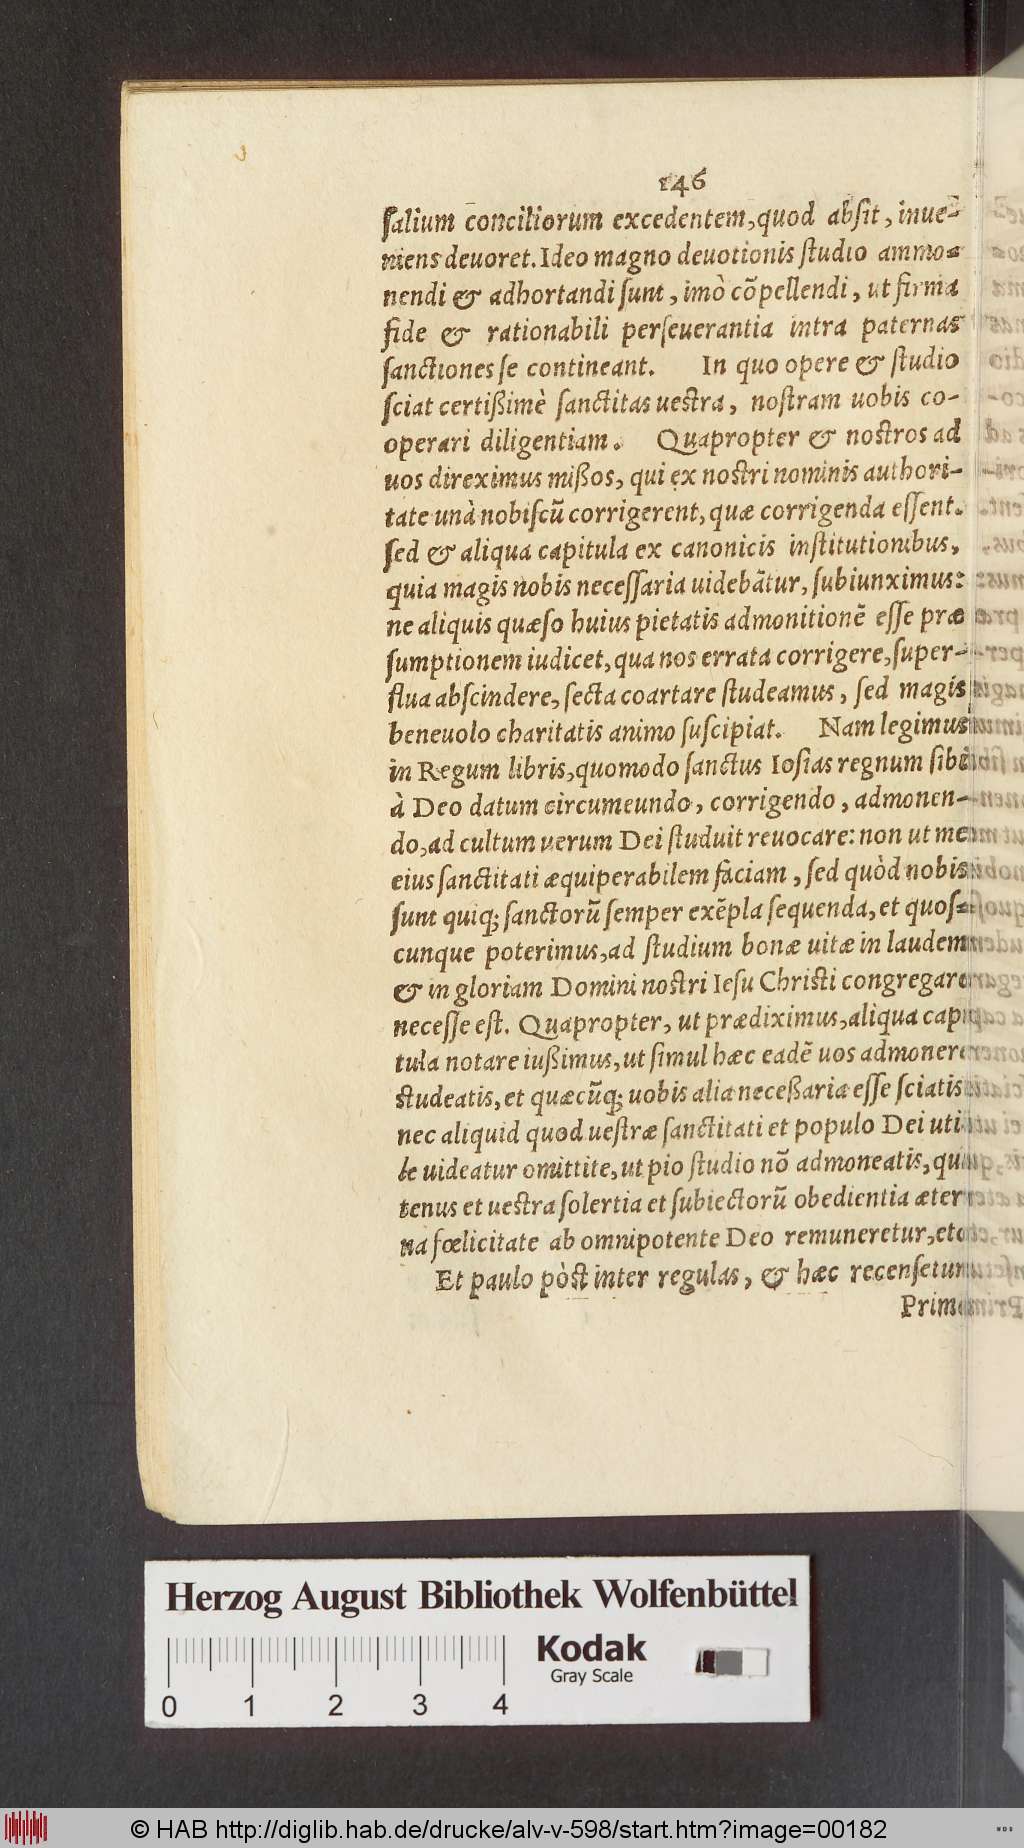 146
ſalium conciliorum excedentem, quod abſit, inue-
niens deuoret. Ideo magno deuotionis ſtudio ammo-
nendi & adhortandi ſunt, imò cõpellendi, ut firma
fide & rationabili perſeuerantia intra paternas
ſanctiones ſe contineant. In quo opere & ſtudio
ſciat certißimè ſanctitas ueſtra, noſtram uobis co-
operari diligentiam. Quapropter & noſtros ad
uos direximus mißos, qui ex noſtri nominis authori-
tate unà nobiſcũ corrigerent, quæ corrigenda eſſent.
ſed & aliqua capitula ex canonicis inſtitutionibus,
quia magis nobis neceſſaria uidebãtur, ſubiunximus:
ne aliquis quæſo huius pietatis admonitionẽ eſſe præ
ſumptionem iudicet, qua nos errata corrigere, ſuper-
flua abſcindere, ſecta coartare ſtudeamus, ſed magis
beneuolo charitatis animo ſuſcipiat. Nam legimus
in Regum libris, quomodo ſanctus Ioſias regnum ſibi
à Deo datum circumeundo, corrigendo, admonen-
do, ad cultum uerum Dei ſtuduit reuocare: non ut me
eius ſanctitati æquiperabilem faciam, ſed quòd nobis
ſunt quiq; ſanctorũ ſemper exẽpla ſequenda, et quoſ-
cunque poterimus, ad ſtudium bonæ uitæ in laudem
& in gloriam Domini noſtri Ieſu Chriſti congregare
neceſſe eſt. Quapropter, ut prædiximus, aliqua capi
tula notare iußimus, ut ſimul hæc eadẽ uos admonere
ſtudeatis, et quæcũq; uobis alia neceßaria eſſe ſciatis
nec aliquid quod ueſtræ ſanctitati et populo Dei uti
le uideatur omittite, ut pio ſtudio nõ admoneatis, qua
tenus et ueſtra ſolertia et ſubiectorũ obedientia æter
na fœlicitate ab omnipotente Deo remuneretur, etc.
Et paulo pòſt inter regulas, & hæc recenſetur
Primo
Herzog August Bibliothek Wolfenbüttel
Kodak
Gray Scale
0 1 2 3 4
© HAB http://diglib.hab.de/drucke/alv-v-598/start.htm?image=00182